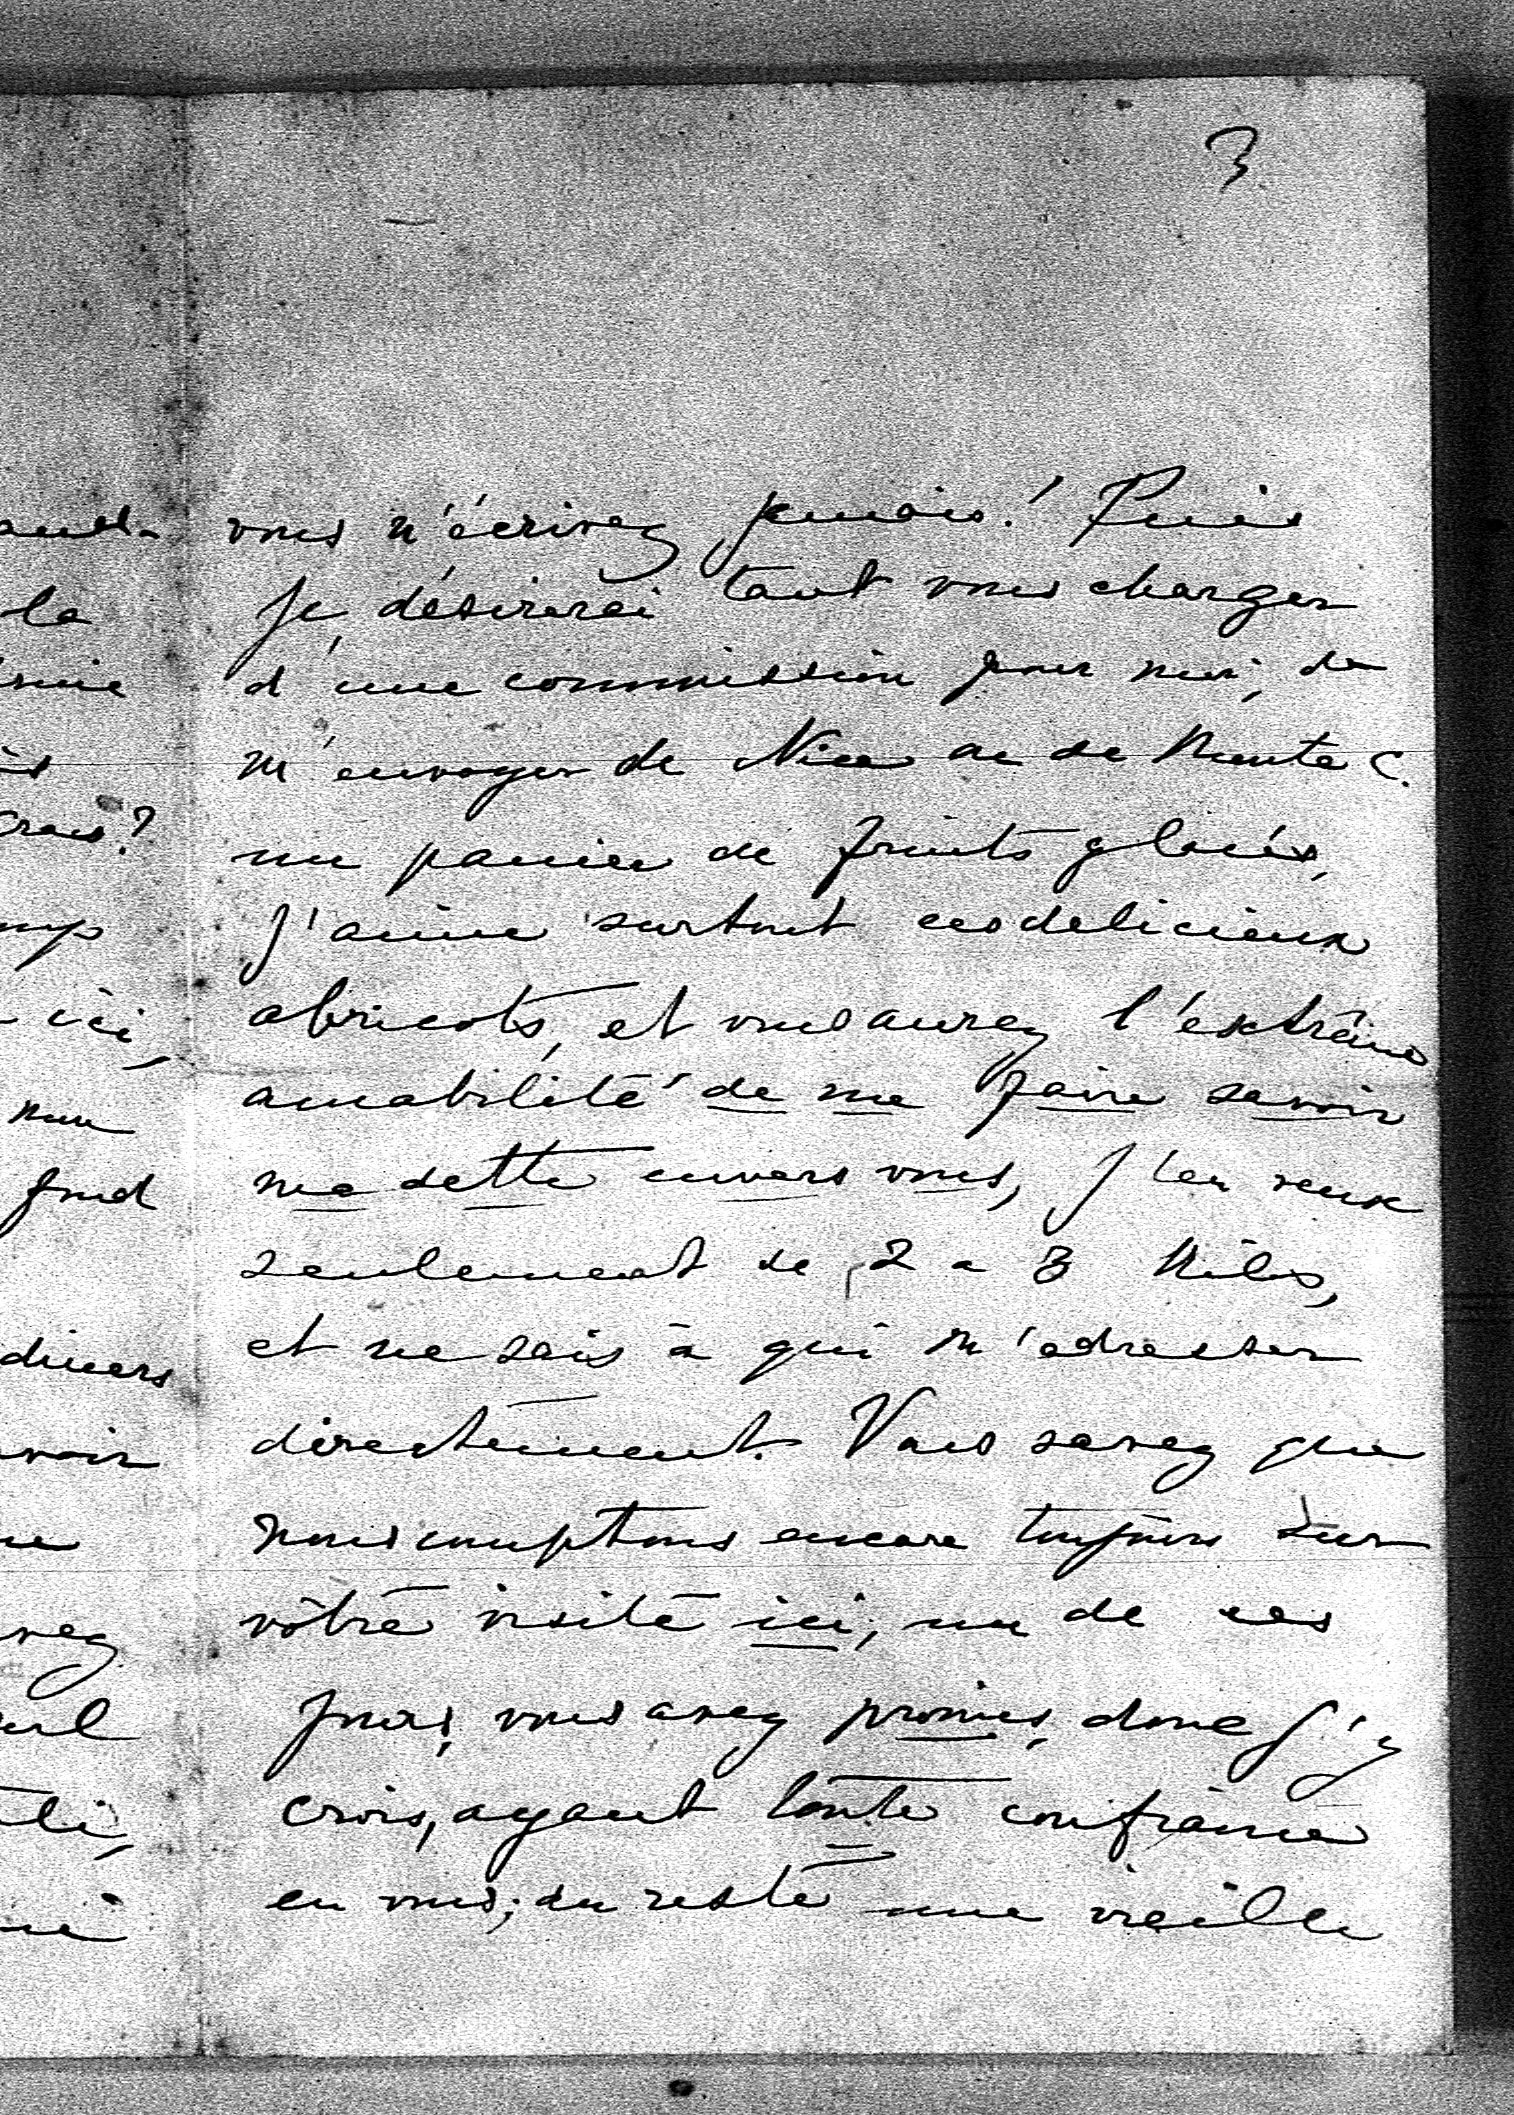 3
vous n'écrivez jamais! Puis
je désirerai tant vous charger
d'une commission pour moi, de
m'envoyer de Nice ou de Monte C.
un panier de fruits glacés,
j'aime surtout ces delicieux
abricots, et vous aurez l'extrême
amabilité de me faire savoir
ma dette envers vous, j'en veux
seulement de 2 a 3 kilos,
et ne sais à qui m'adresser
directement. Vous savez que
nous comptons encore toujours sur
vôtre visite ici, un de ces
jours, vous avez promis, donc j'y
crois, ayant toute confiance
en vous; du reste une vieille
la
crois?
ici,
fond
diners